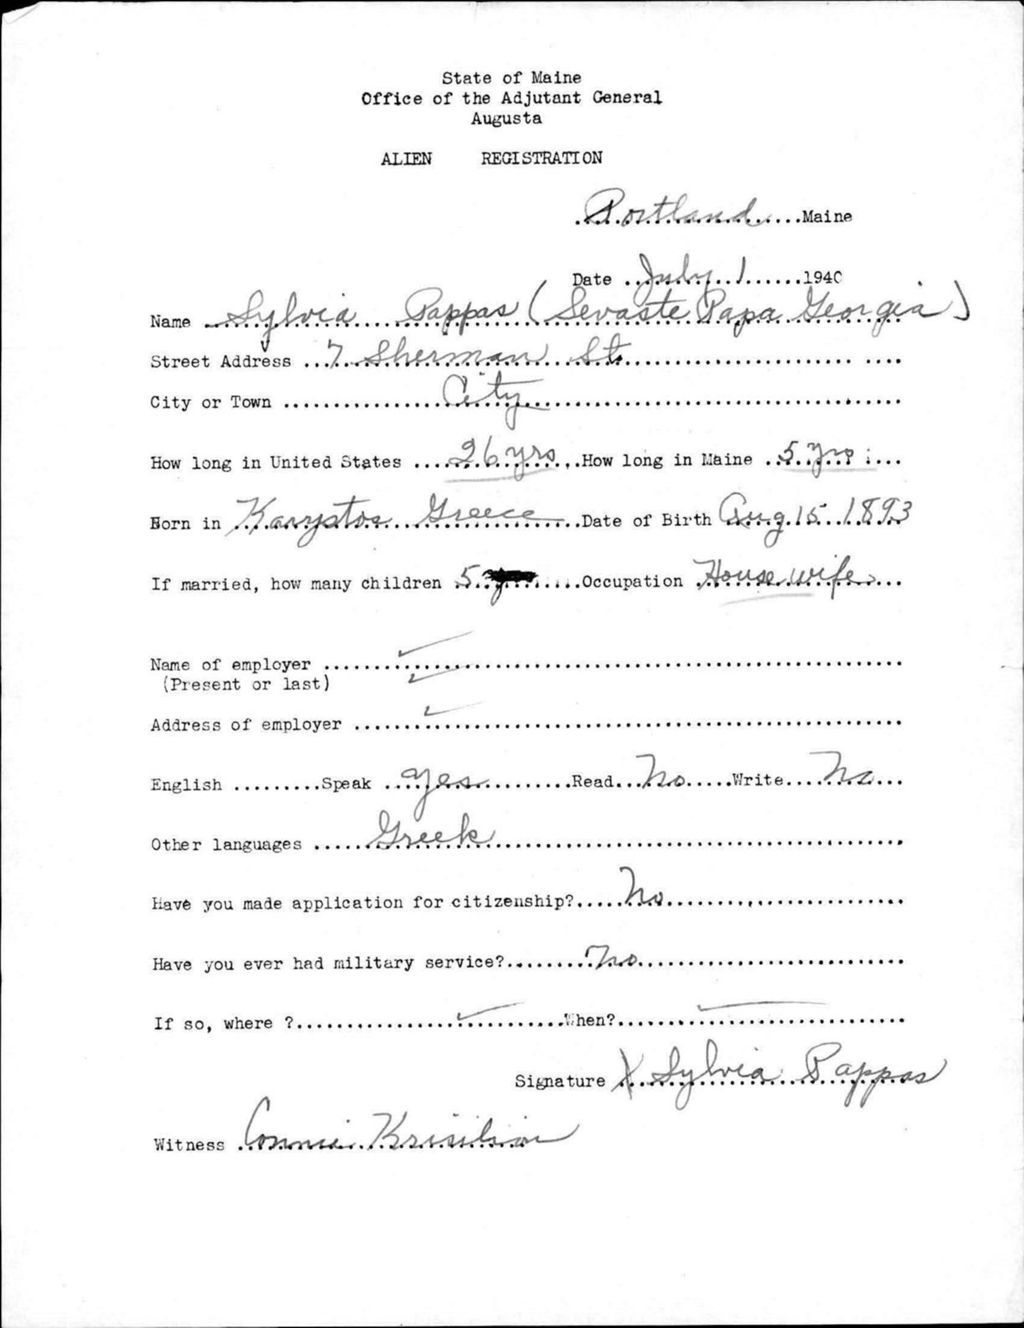 State of Maine
Office of the Adjutant General
Augusta
ALIEN REGISTRATION
Portland Maine
Date July 1 1940
Name Sylvia Pappas (Sevaste Papa Georgia)
Street Address 7 Sherman St.
City or Town City
How long in United States 26 yrs. How long in Maine 5 yrs
Born in Karystos Greece Date of Birth Aug 15 1893
If married, how many children 5 Occupation Housewife
Name of employer
(Present or last)
Address of employer
English Speak yes Read No Write No
Other languages Greek
Have you made application for citizenship? No
Have you ever had military service? No
If so, where ? When?
Signature X Sylvia Pappas
Witness Connie